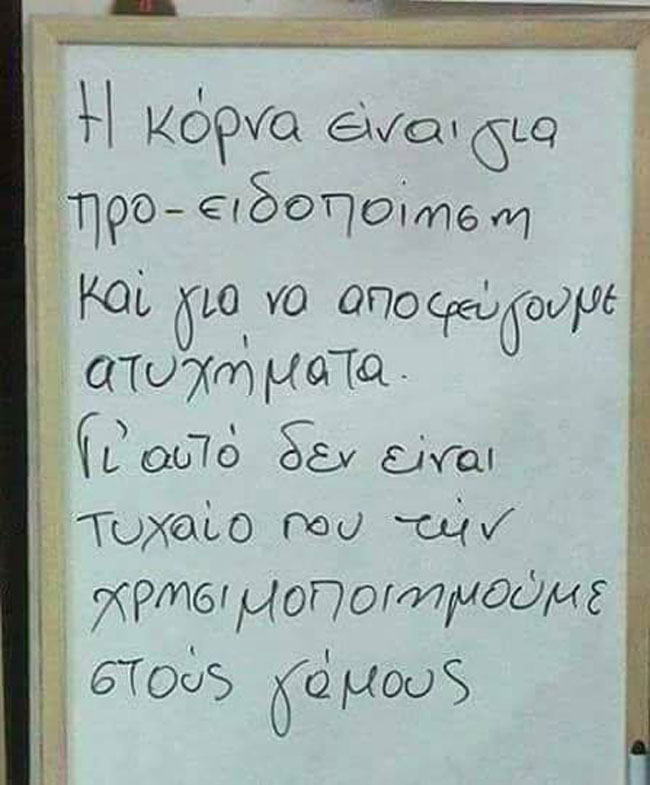 Η κόρνα είναι για
προ-ειδοποίηση
και για να αποφεύγουμε
ατυχήματα.
Γι' αυτό δεν είναι
τυχαίο που τήν
χρησιμοποιημούμε
στούς γάμους